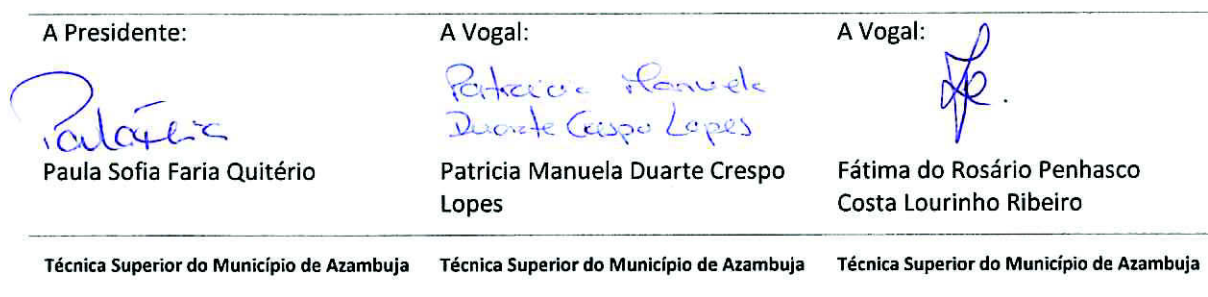 A Presidente:
Paula Sofia Faria Quitério
Técnica Superior do Município de Azambuja
A Vogal:
Patricia Manuela
Duarte Crespo Lopes
Patricia Manuela Duarte Crespo
Lopes
Técnica Superior do Município de Azambuja
A Vogal:
Fátima do Rosário Penhasco
Costa Lourinho Ribeiro
Técnica Superior do Município de Azambuja